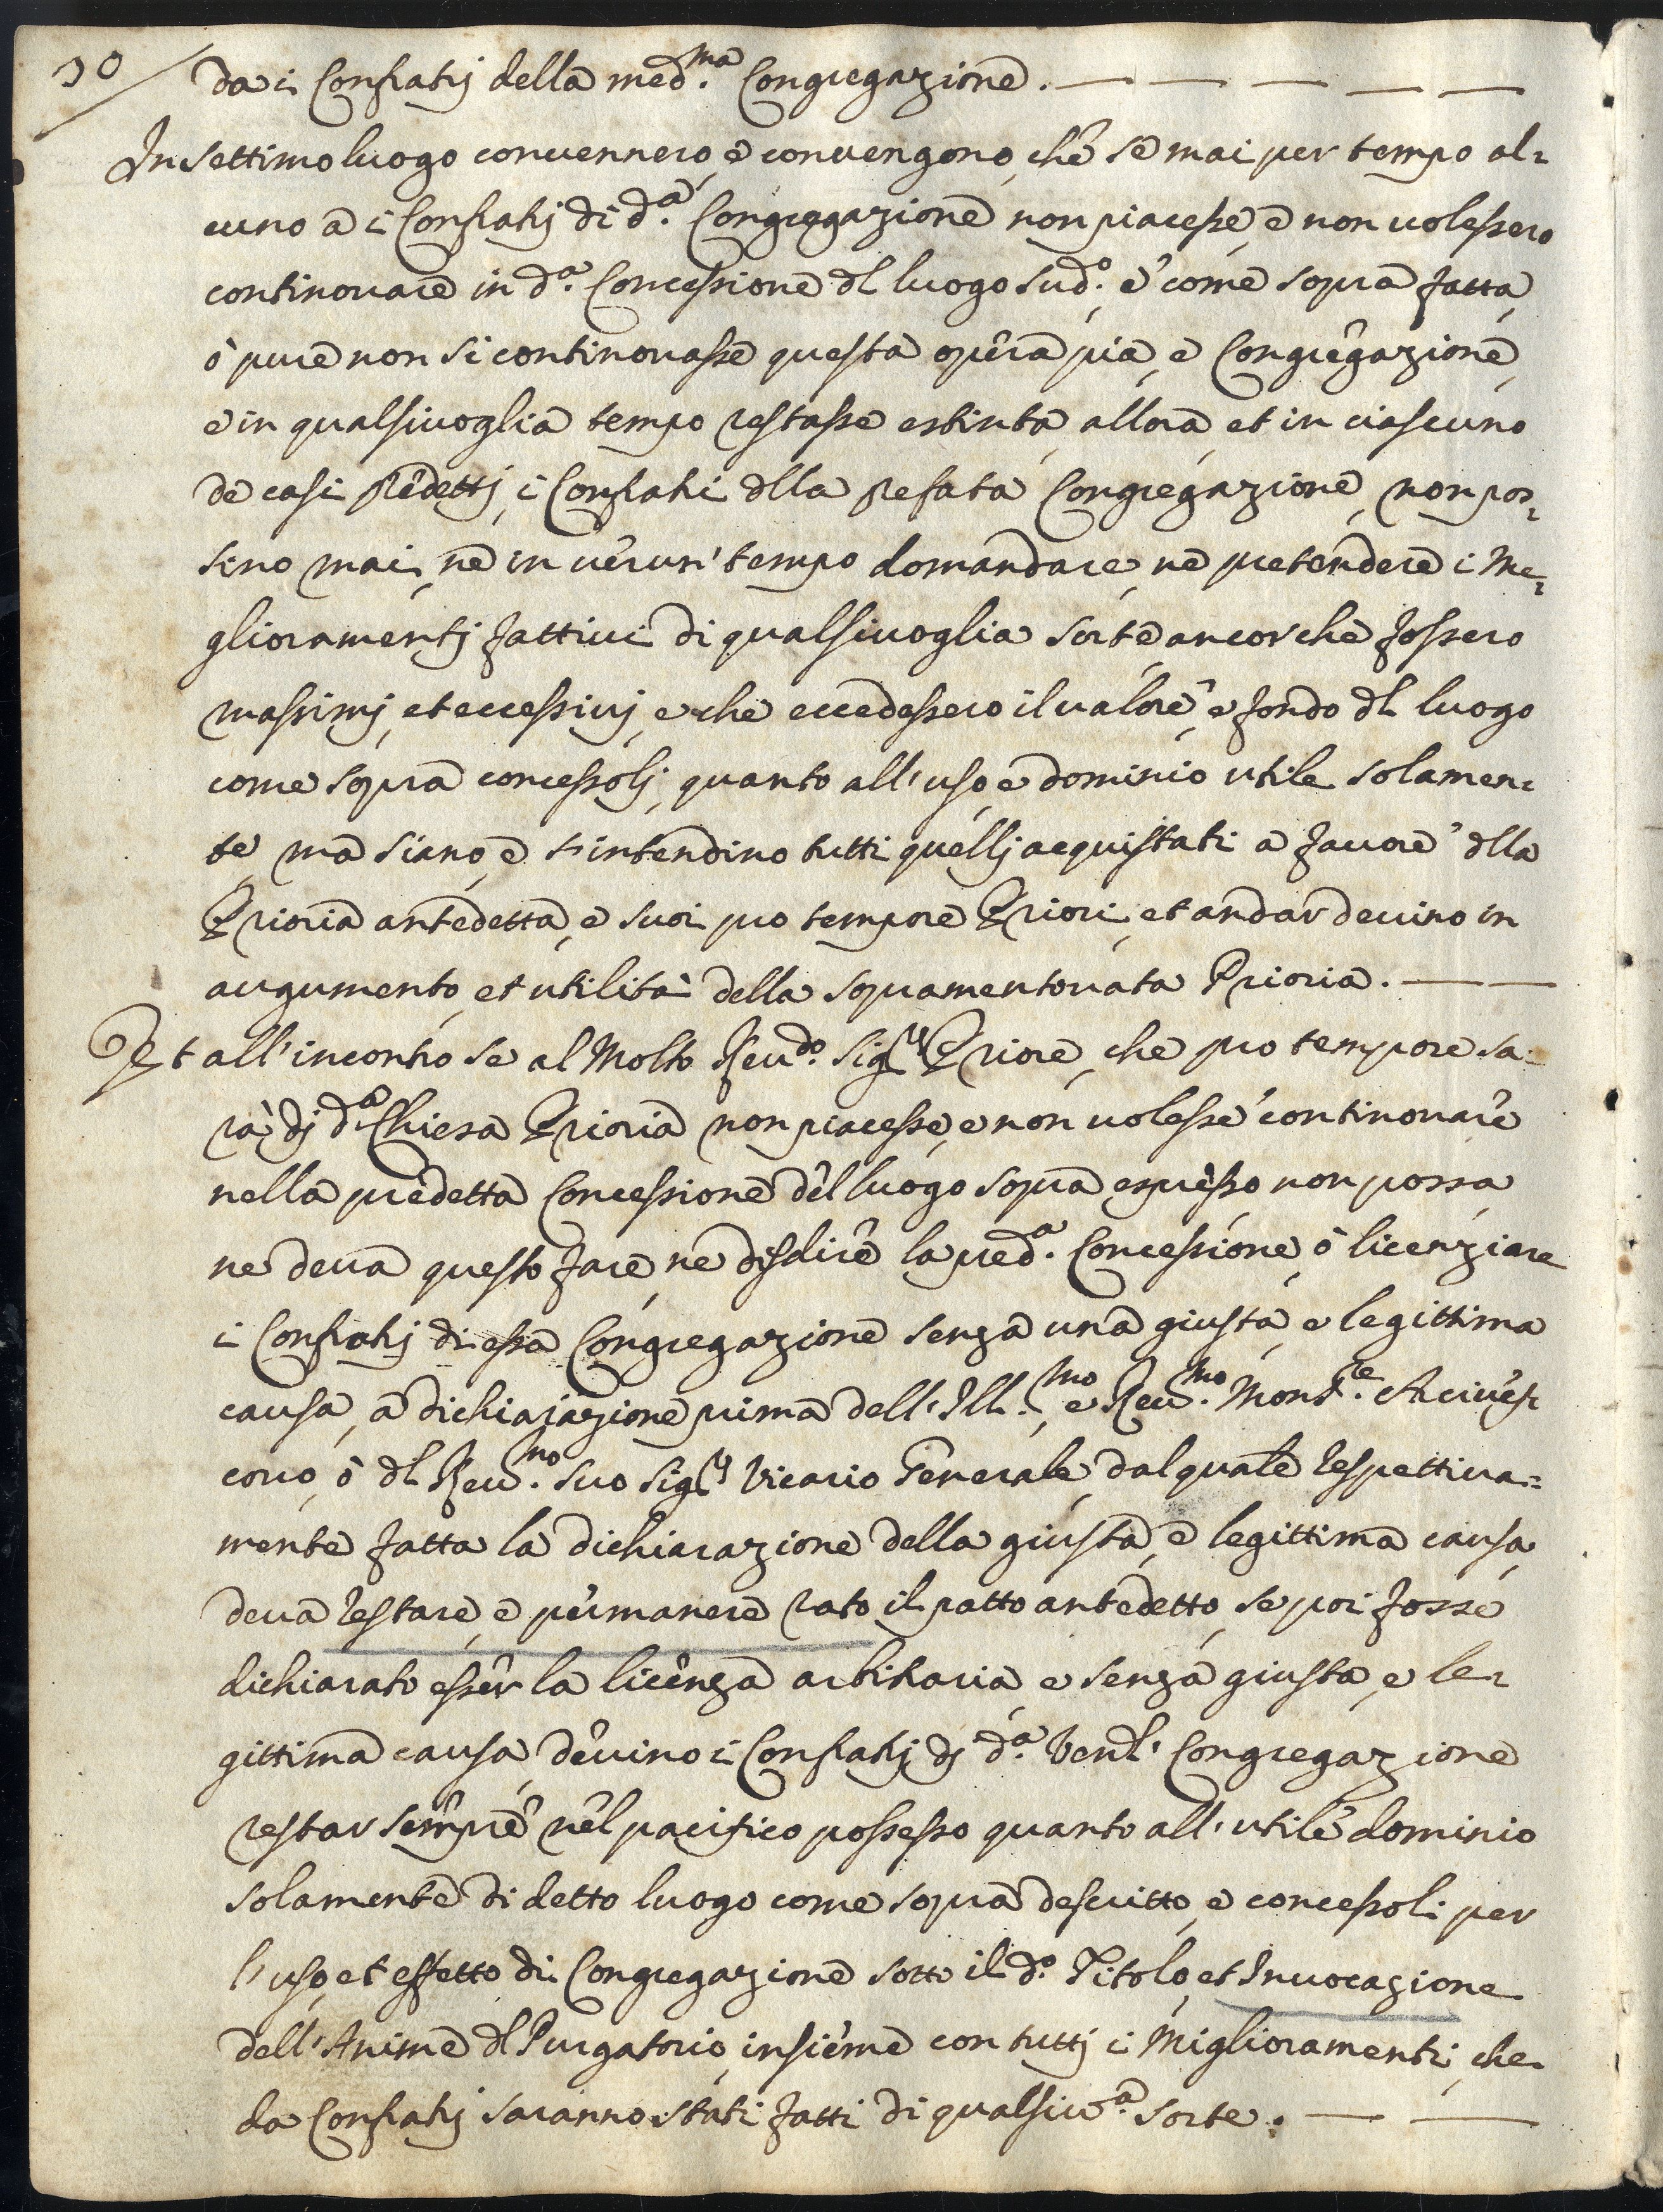 30
da i Confratj della med.ma Congregazione. — — — — —
In settimo luogo convennero, e convengono, che se mai per tempo al=
cuno a i Confratj di d.a Congregazione non piacesse, e non volessero
continovare in d.a Concessione dl luogo sud.o e come sopra fatta,
ò pure non si continovasse questa opera pia, e Congregazione,
e in qualsivoglia tempo restasse estinta, allora, et in ciascuno
de casi predetti, i Confrati dlla prefata Congregazione, non pos=
sino mai, ne in verun' tempo domandare, ne pretendere i Me=
glioramentj fattivi di qualsivoglia sorte ancor che fossero
massimj, et eccessivj, e che eccedessero il valore, e fondo dl luogo
come sopra concessolj, quanto all'uso, e dominio utile solamen=
te, ma siano, e s'intendino tutti quellj acquistati a favore dlla
Prioria antedetta, e suoi pro tempore Priori, et andar devino in
augumento, et utilità della sopramentovata Prioria. — —
Et all'incontro se al Molto Revdo. Sigr. Priore, che pro tempore sa=
rà dj d.a Chiesa Prioria non piacesse, e non volesse continovare
nella predetta Concessione del luogo sopra espresso non possa,
ne deva questo fare, ne disdire la pred.a Concessione, ò licenziare
i Confratj di essa Congregazione senza una giusta, e legittima
causa, a dichiarazione prima dell'Ill.mo, e Rev.mo Monsre. Arcives
covo, ò dl Rev.mo suo Sigr. Vicario Generale, dal quale respettiva=
mente fatta la dichiarazione della giusta, e legittima causa,
deva restare, e permanere rato il patto antedetto, se poi fosse
dichiarato esser la licenza arbitraria, e senza giusta, e le=
gittima causa devino i Confratj dj d.a Venl. Congregazione
restar sempre nel pacifico possesso quanto all'utile dominio
solamente di detto luogo come sopra descritto, e concessoli per
l'uso, et effetto di Congregazione sotto il d.o Titolo, et Invocazione
dell'Anime dl Purgatorio, insieme con tuttj i Miglioramenti, che
da Confratj saranno stati fatti di qualsiv.a sorte. — —